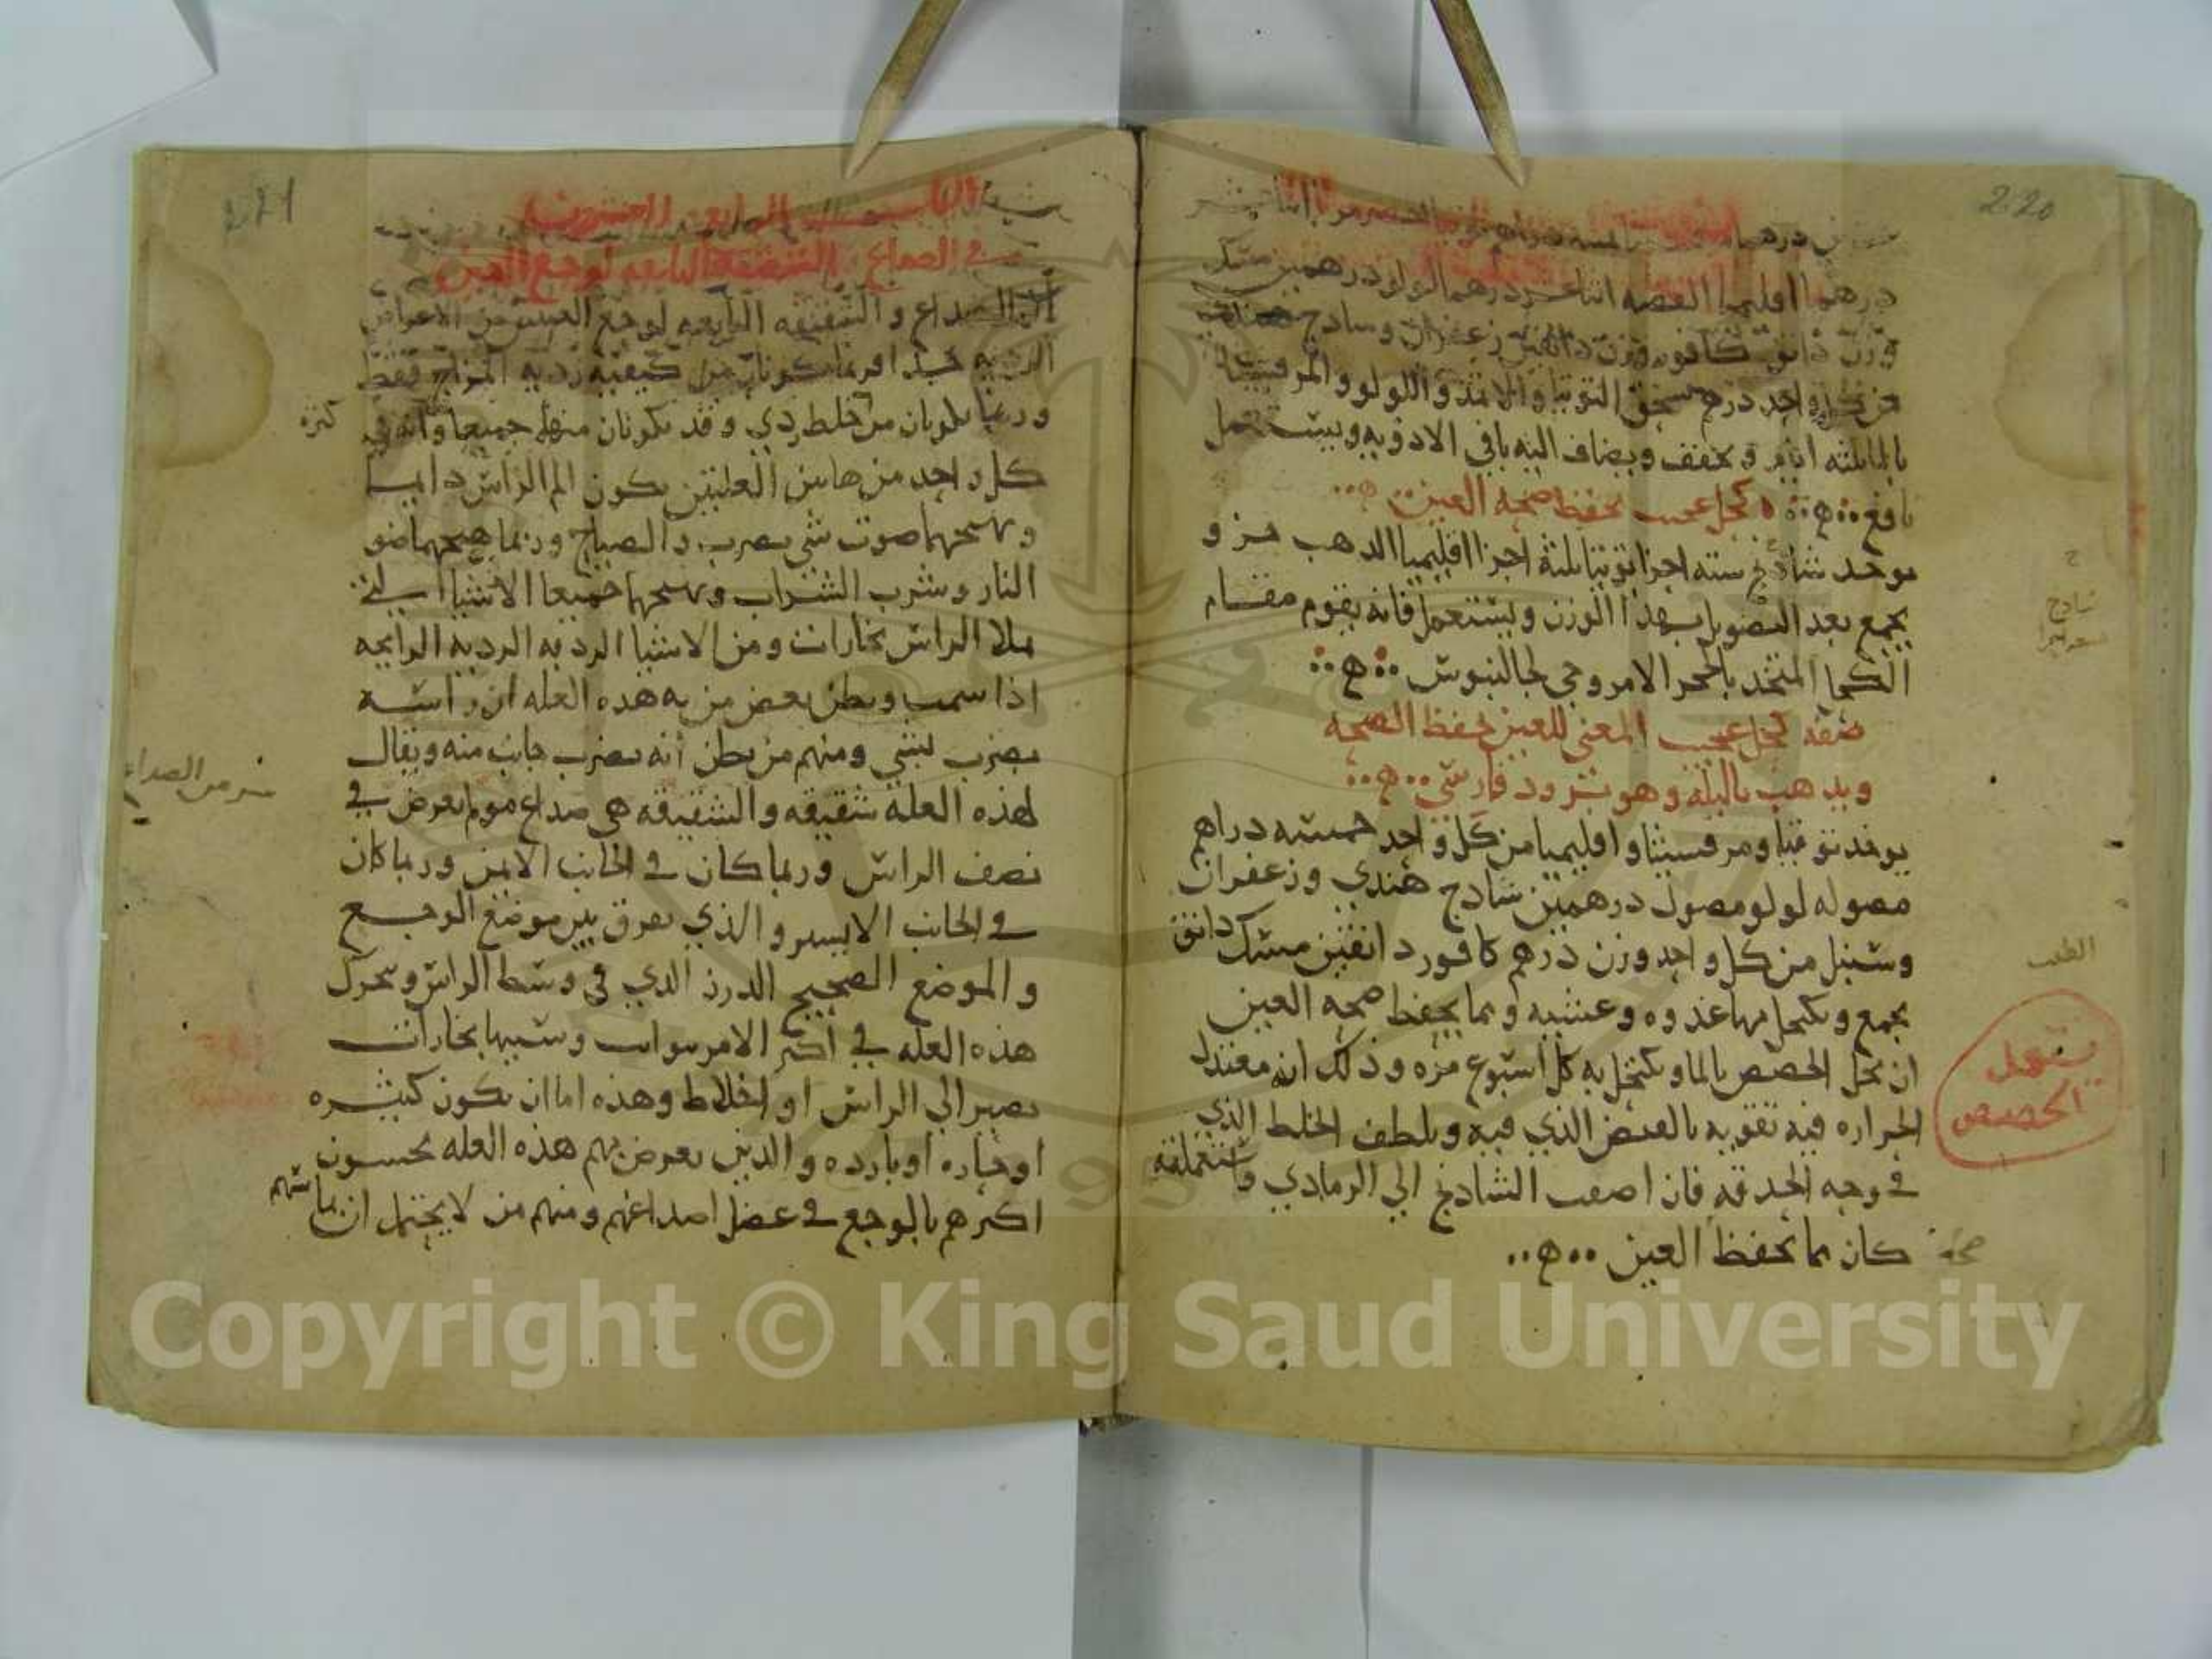 220
درهما اقليميا الفضه اثنا عشر درهما لولو درهمين مسك
وزن دانق كافور وزن دانقين زعفران وسادج هندي
من كل واحد درهم يسحق التوتيا والاثمد واللولو والمرقشيثا
بالما ثلثه ايام ويجفف ويضاف اليه باقي الادويه ويستعمل
نافع ه كحل عجيب يحفظ صحه العين
يوخد شادنج سته اجزا توتيا ثلثة اجزا اقليميا الدهب جز و
يجمع بعد التصويل بهذا الوزن ويستعمل فانه يقوم مقام
الكحل المتخد بالحجر الافروجي لجالينوس
صفه كحل عجيب المعنى للعين يحفظ الصحه
ويدهب بالبلة وهو برود فارسي
يوخد توتيا ومرقسيثا واقليميا من كل واحد خمسه دراهم
مصوله لولو مصول درهمين سادج هندي وزعفران
وسنبل من كل واحد وزن درهم كافور دانقين مسك دانق
يجمع ويكتحل بها غدوه وعشيه ومما يحفظ صحه العين
ان يحل الحضض بالما ويكتحل به كل اسبوع مره وذلك انه معتدل
الحراره فيه تقويه بالقبض الذي فيه ويلطف الخلط الذي
في وجه الحدقه فان اضفت الشادنج الي الرمادي واستعملته
كان مما يحفظ العين
صحة
شادنج
الطب
الحضض
221
الباب الرابع والعشرون
في الصداع والشقيقه التابعه لوجع العين
ان الصداع والشقيقه التابعه لوجع العين من الاعراض
الرديه جدا فربما يكونان من كيفيه رديه المزاج فقط
وربما يكونان من خلط ردي وقد يكونان منهما جميعا وانه في
كثره
كل واحد من هاتين العلتين يكون الم الراس دايما
ويهيجهما صوت شي يضرب والصياح وربما هيجهما ضو
النار وشرب الشراب ويهيجهما جميعا الاشيا التي
تملا الراس بخارات ومن الاشيا الرديه الرديه الرايحه
اذا سمت ويظن بعض من به هذه العله ان راسه
يضرب بشي ومنهم من يظن انه يضرب جانب منه ويقال
لهذه العلة شقيقه والشقيقه هي صداع مولم يعرض في
نصف الراس وربما كان في الجانب الايمن وربما كان
في الجانب الايسر والذي يفرق بين موضع الوجع
والموضع الصحيح الدرز الدي في وسط الراس وتتحرك
هذه العله في اكثر الامر بنوايب وسببها بخارات
تصير الي الراس او اخلاط وهذه اما ان تكون كثيره
او حاره او بارده والذين يعرض لهم هذه العله يحسون
اكثرهم بالوجع في عضل اصداغهم ومنهم من لا يحتمل ان يماسهم
من الصداع
Copyright © King Saud University